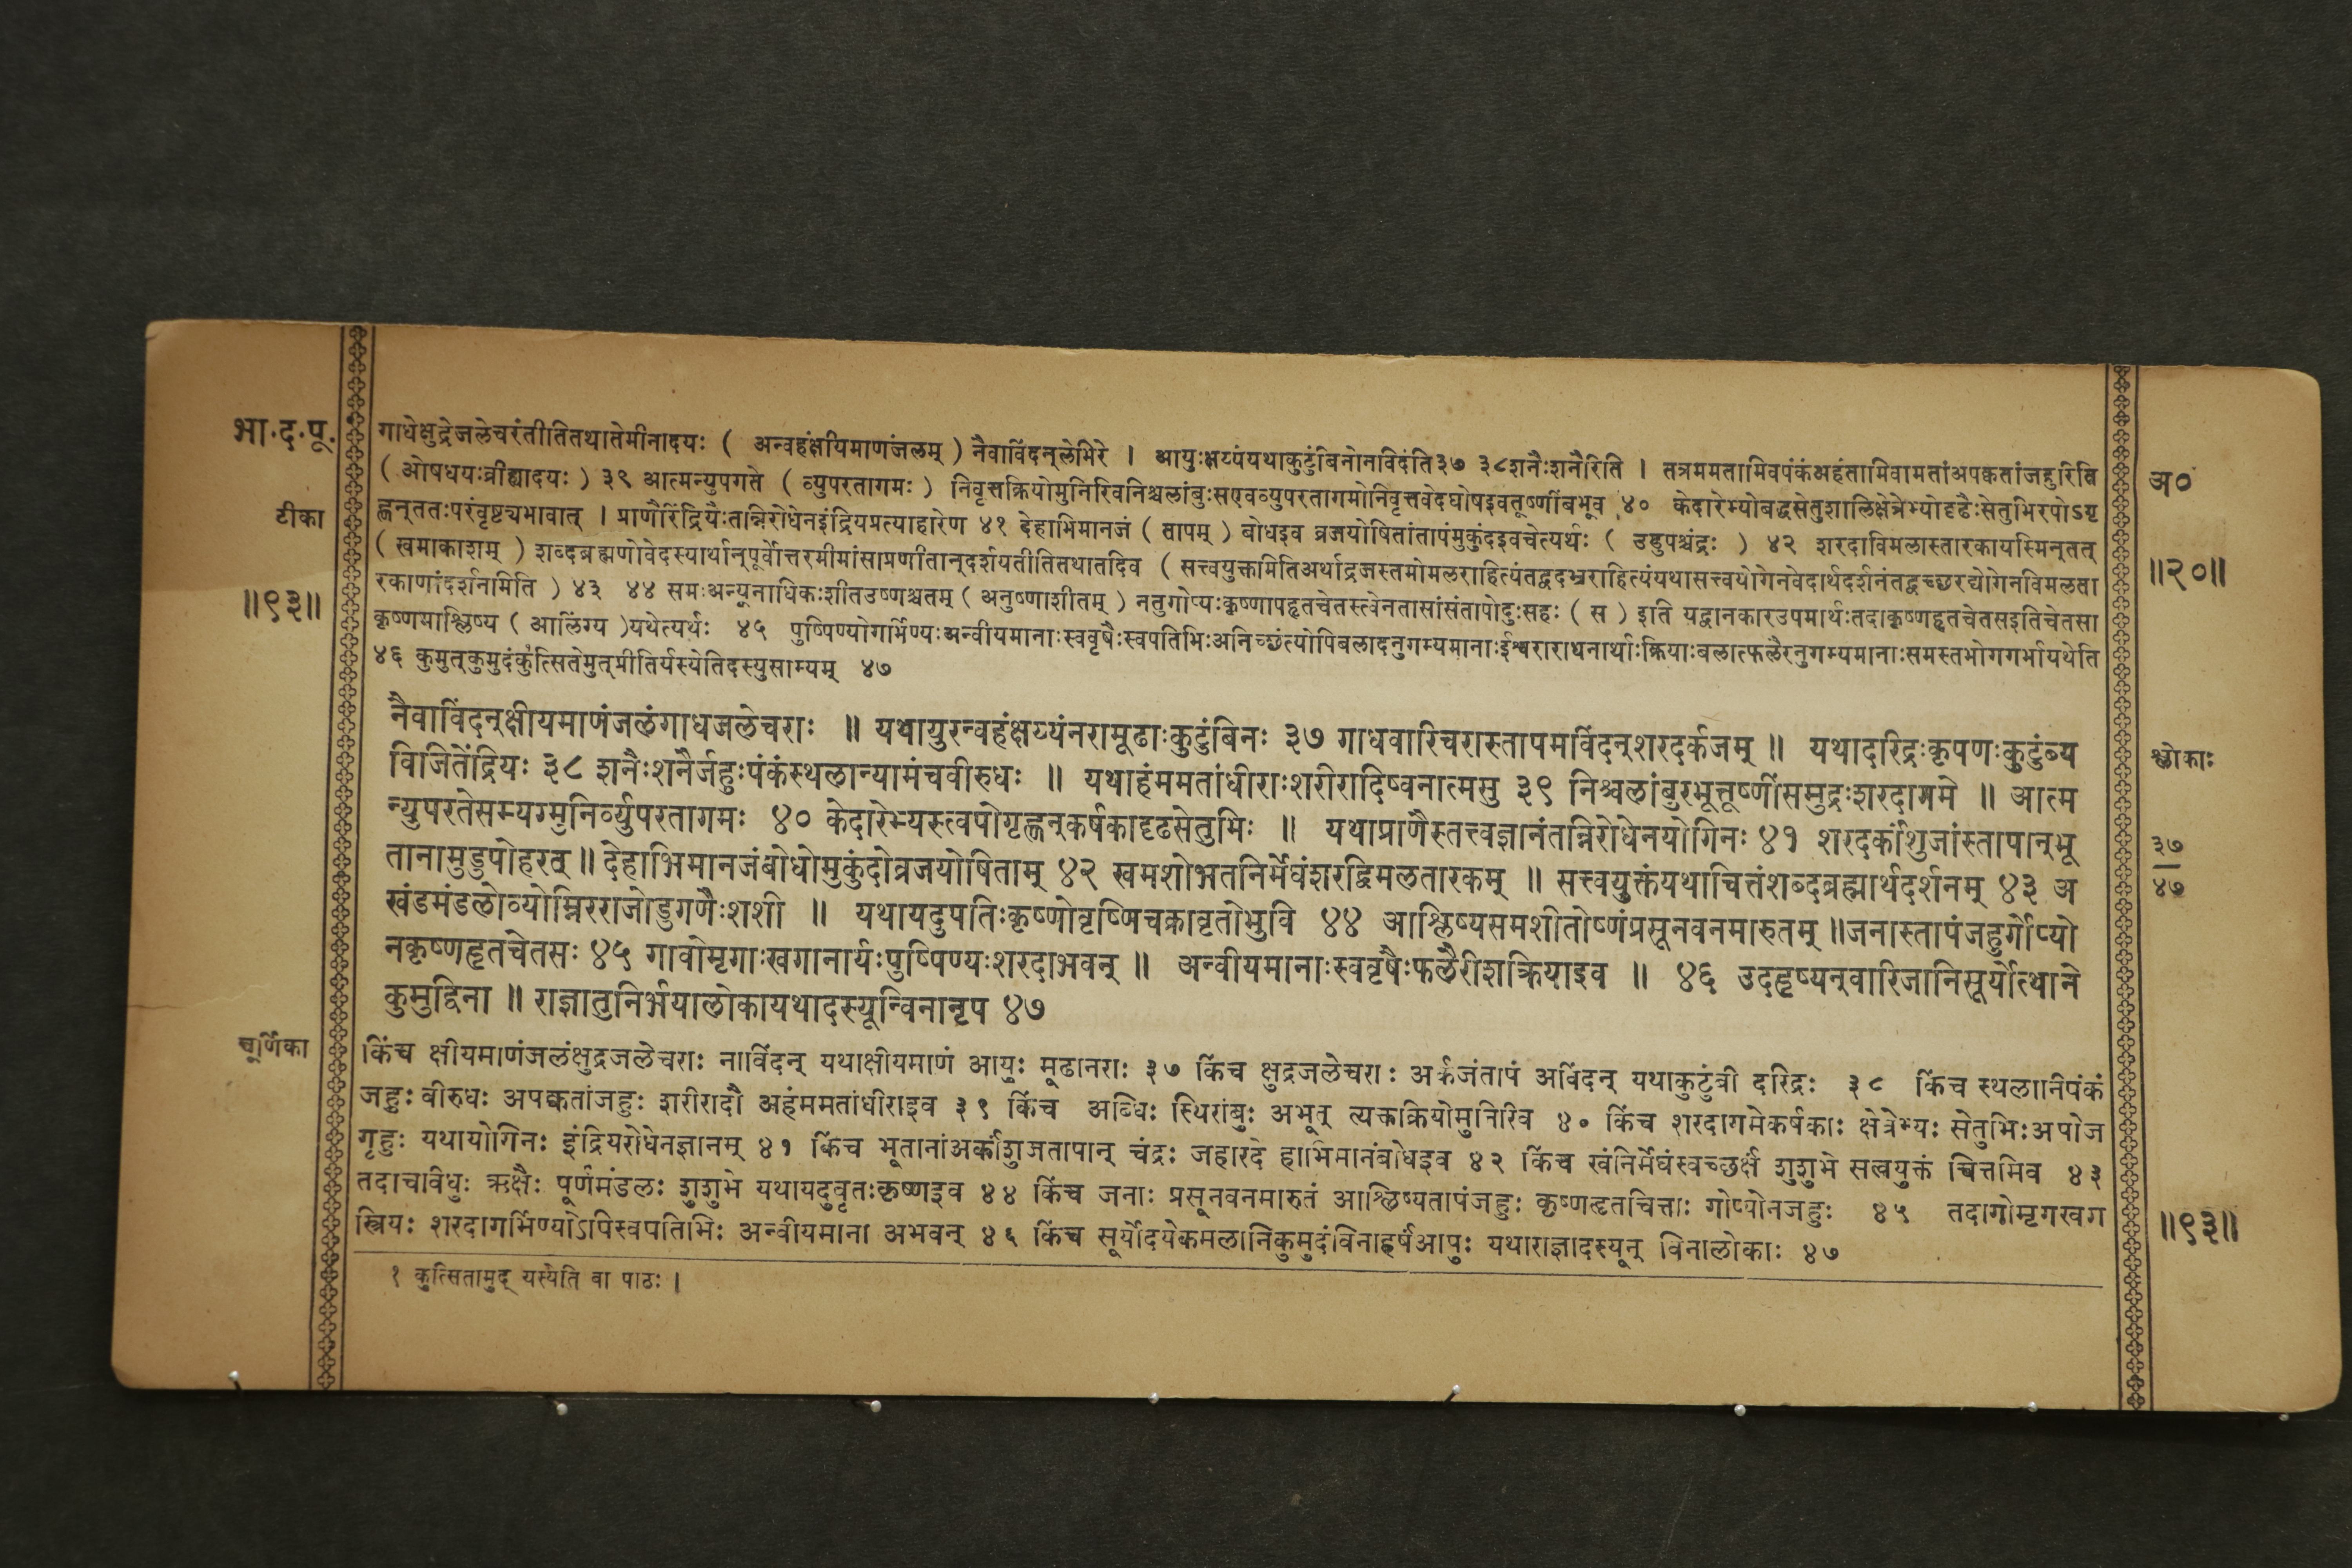 भा.द.पू.
टीका
॥९३॥
गाधेक्षुद्रेजलेचरंतीतितथातेमीनादयः ( अन्वहंक्षीयमाणंजलम् ) नैवाविंदन्लेभिरे । आयुःक्षय्यंयथाकुटुंबिनोनविदंति३७ ३८शनैःशनैरिति । तत्रममतामिवपंकंअहंतामिवामतांअपक्वतांजहुरिति
( ओषधयःव्रीह्यादयः ) ३९ आत्मन्युपगते ( व्युपरतागमः ) निवृत्तक्रियोमुनिरिवनिश्चलांबुःसएवव्युपरतागमोनिवृत्तवेदघोषइवतूष्णींबभूव ४० केदारेभ्योबद्धसेतुशालिक्षेत्रेभ्योदृढैःसेतुभिरपोऽगृ
ह्णन्ततःपरंवृष्ट्यभावात् । प्राणैरिंद्रियैःतन्निरोधेनइंद्रियप्रत्याहारेण ४१ देहाभिमानजं ( तापम् ) बोधइव व्रजयोषितांतापंमुकुंदइवचेत्यर्थः ( उडुपश्चंद्रः ) ४२ शरदाविमलास्तारकायस्मिन्तत्
( खमाकाशम् ) शब्दब्रह्मणोवेदस्यार्थान्पूर्वोत्तरमीमांसाप्रणीतान्दर्शयतीतितथातदिव ( सत्त्वयुक्तमितिअर्थाद्रजस्तमोमलराहित्यंतद्वदभ्रराहित्यंयथासत्त्वयोगेनवेदार्थदर्शनंतद्वच्छरद्योगेनविमलता
रकाणांदर्शनमिति ) ४३ ४४ समःअन्यूनाधिकःशीतउष्णश्चतम् ( अनुष्णाशीतम् ) नतुगोप्यःकृष्णापहृतचेतस्त्वेनतासांसंतापोदुःसहः ( स ) इति यद्वानकारउपमार्थःतदाकृष्णहृतचेतसइतिचेतसा
कृष्णमाश्लिष्य ( आलिंग्य )यथेत्यर्थः ४५ पुष्पिण्योगर्भिण्यःअन्वीयमानाःस्ववृषैःस्वपतिभिःअनिच्छंत्योपिबलादनुगम्यमानाःईश्वराराधनार्थाःक्रियाःबलात्फलैरनुगम्यमानाःसमस्तभोगगर्भायथेति
४६ कुमुत्कुमुदंकुत्सितेमुत्प्रीतिर्यस्येतिदस्युसाम्यम् ४७
नैवाविंदन्क्षीयमाणंजलंगाधजलेचराः ॥ यथायुरन्वहंक्षय्यंनरामूढाःकुटुंबिनः ३७ गाधवारिचरास्तापमविंदन्शरदर्कजम् ॥ यथादारिद्रःकृपणःकुटुंब्य
विजितेंद्रियः ३८ शनैःशनैर्जहुःपंकंस्थलान्यामंचवीरुधः ॥ यथाहंममतांधीराःशरीरादिष्वनात्मसु ३९ निश्चलांबुरभूत्तूष्णींसमुद्रःशरदागमे ॥ आत्म
न्युपरतेसम्यग्मुनिर्व्युपरतागमः ४० केदारेभ्यस्त्वपोगृह्णन्कर्षकादृढसेतुभिः ॥ यथाप्राणैस्तत्त्वज्ञानंतन्निरोधेनयोगिनः ४१ शरदर्कांशुजांस्तापान्भू
तानामुडुपोहरत् ॥ देहाभिमानजंबोधोमुकुंदोव्रजयोषिताम् ४२ खमशोभतनिर्मेघंशरद्विमलतारकम् ॥ सत्त्वयुक्तंयथाचित्तंशब्दब्रह्मार्थदर्शनम् ४३ अ
खंडमंडलोव्योम्निरराजोडुगणैःशशी ॥ यथायदुपतिःकृष्णोवृष्णिचक्रावृतोभुवि ४४ आश्लिष्यसमशीतोष्णंप्रसूनवनमारुतम् ॥जनास्तापंजहुर्गोप्यो
नकृष्णहृतचेतसः ४५ गावोमृगाःखगानार्यःपुष्पिण्यःशरदाभवन् ॥ अन्वीयमानाःस्ववृषैःफलैरीशक्रियाइव ॥ ४६ उदहृष्यन्वारिजानिसूर्योत्थाने
कुमुद्विना ॥ राज्ञातुनिर्भयालोकायथादस्यून्विनानृप ४७
चूर्णिका
किंच क्षीयमाणंजलंक्षुद्रजलेचराः नाविंदन् यथाक्षीयमाणं आयुः मूढानराः ३७ किंच क्षुद्रजलेचराः अर्कजंतापं अविंदन् यथाकुटुंबी दरिद्रः ३८ किंच स्थलानिपंकं
जहुः वीरुधः अपक्वतांजहुः शरीरादौ अहंममतांधीराइव ३९ किंच अब्धिः स्थिरांबुः अभूत् त्यक्तक्रियोमुनिरिव ४० किंच शरदागमेकर्षकाः क्षेत्रेभ्यः सेतुभिःअपोज
गृहुः यथायोगिनः इंद्रियरोधेनज्ञानम् ४१ किंच भूतानांअर्कांशुजतापान् चंद्रः जहारदे हाभिमानंबोधइव ४२ किंच खंनिर्मेघंस्वच्छर्क्षं शुशुभे सत्वयुक्तं चित्तमिव ४३
तदाचविधुः ऋक्षैः पूर्णमंडलः शुशुभे यथायदुवृतःकृष्णइव ४४ किंच जनाः प्रसूनवनमारुतं आश्लिष्यतापंजहुः कृष्णहृतचित्ताः गोप्योनजहुः ४५ तदागोमृगखग
स्त्रियः शरदागर्भिण्योऽपिस्वपतिभिः अन्वीयमाना अभवन् ४६ किंच सूर्योदयेकमलानिकुमुदंविनाहर्षंआपुः यथाराज्ञादस्यून् विनालोकाः ४७
१ कुत्सितामुद् यस्येति वा पाठः ।
अ०
॥२०॥
श्लोकाः
३७
४७
॥९३॥